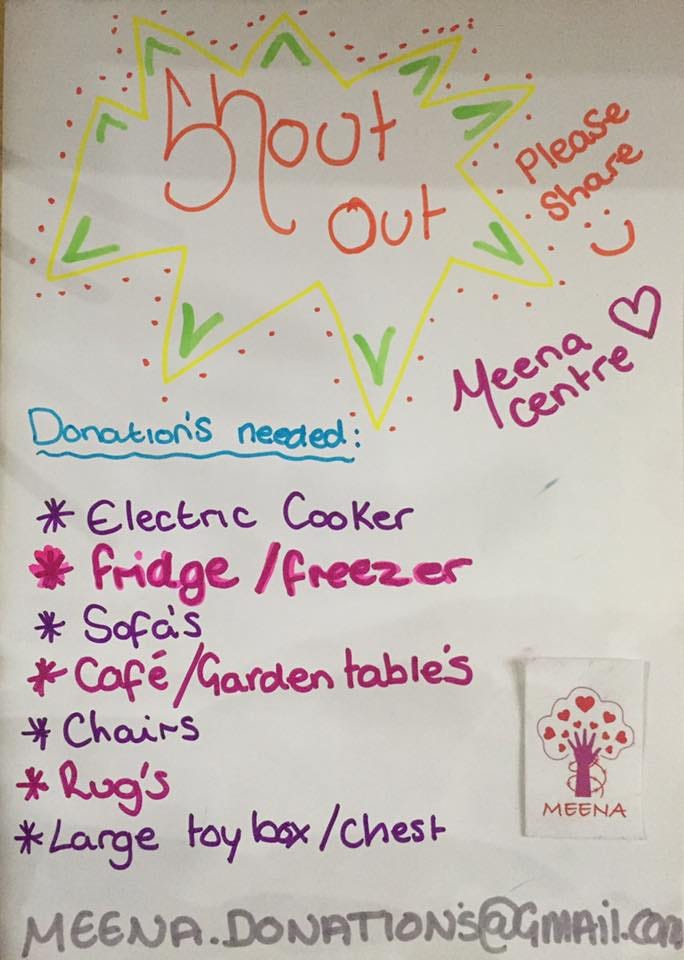 Shout
Out
Please
Share
Meena
centre
Donation's needed:
* Electric Cooker
* fridge/freezer
* Sofa's
* Café/Garden table's
* Chairs
* Rug's
* Large toy box/chest
MEENA
MEENA.DONATION's@Gmail.com